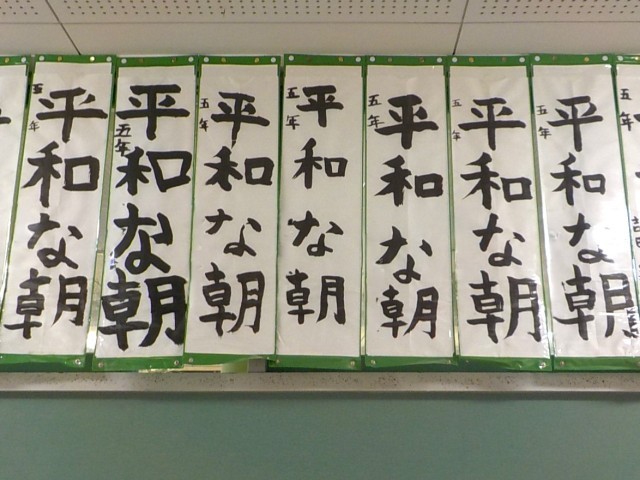 五年
平和な朝
五年
平和な朝
五年
平和な朝
五年
平和な朝
五年
平和な朝
五年
平和な朝
五年
平和な朝
五年